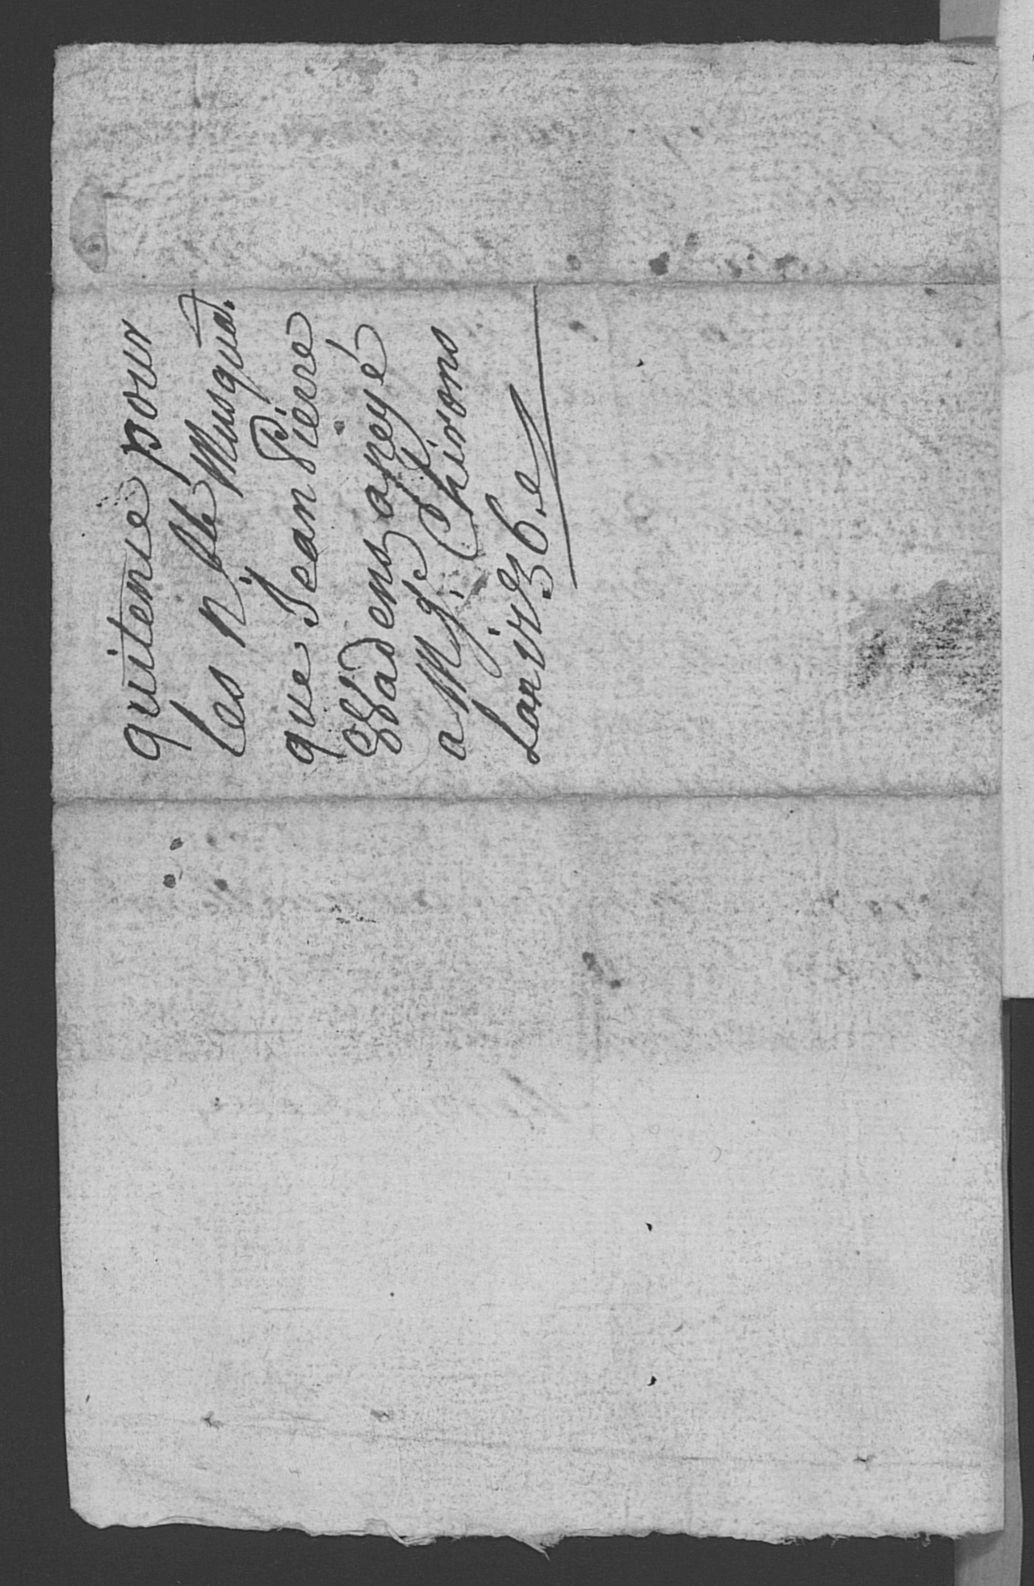 quitence pour
les n. ble Musquat.
que Jean Pierre
Gadens apeyé
a Mgr. Chirons
Lan 1736.e